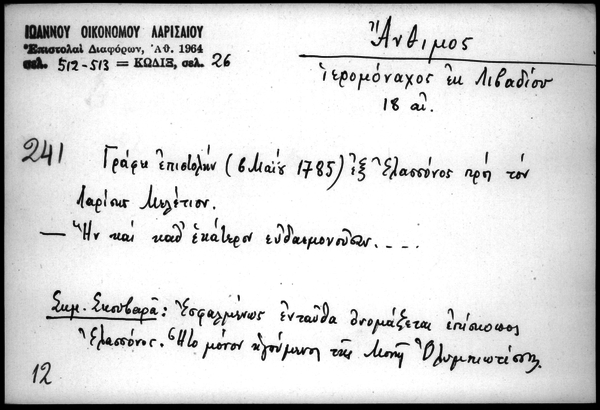 ΙΩΑΝΝΟΥ ΟΙΚΟΝΟΜΟΥ ΛΑΡΙΣΑΙΟΥ
Ἐπιστολαὶ Διαφόρων, Ἀθ. 1964
σελ. 512-513 = ΚΩΔΙΞ, σελ. 26
Ἄνθιμος
ἱερομόναχος ἐκ Λιβαδίου
18 αἰ.
241 Γράφει ἐπιστολὴν (6 Μαΐου 1785) ἐξ Ἐλασσόνος πρὸς τὸν
Λαρίσης Μελέτιον.
— Ἣν καὶ καθ' ἑκάτερον εὐδαιμονοῦσαν. . . .
Σημ. Σκουβαρᾶ: Ἐσφαλμένως ἐνταῦθα ὀνομάζεται ἐπίσκοπος
Ἐλασσόνος. Ἦτο μόνον ἡγούμενος τῆς Μονῆς Ὀλυμπιωτίσσης.
12